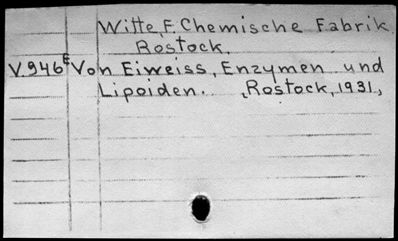 Witte, F. Chemische Fabrik.
Rostock.
V.946E Von Eiweiss, Enzymen und
Lipoiden. Rostock, 1931,